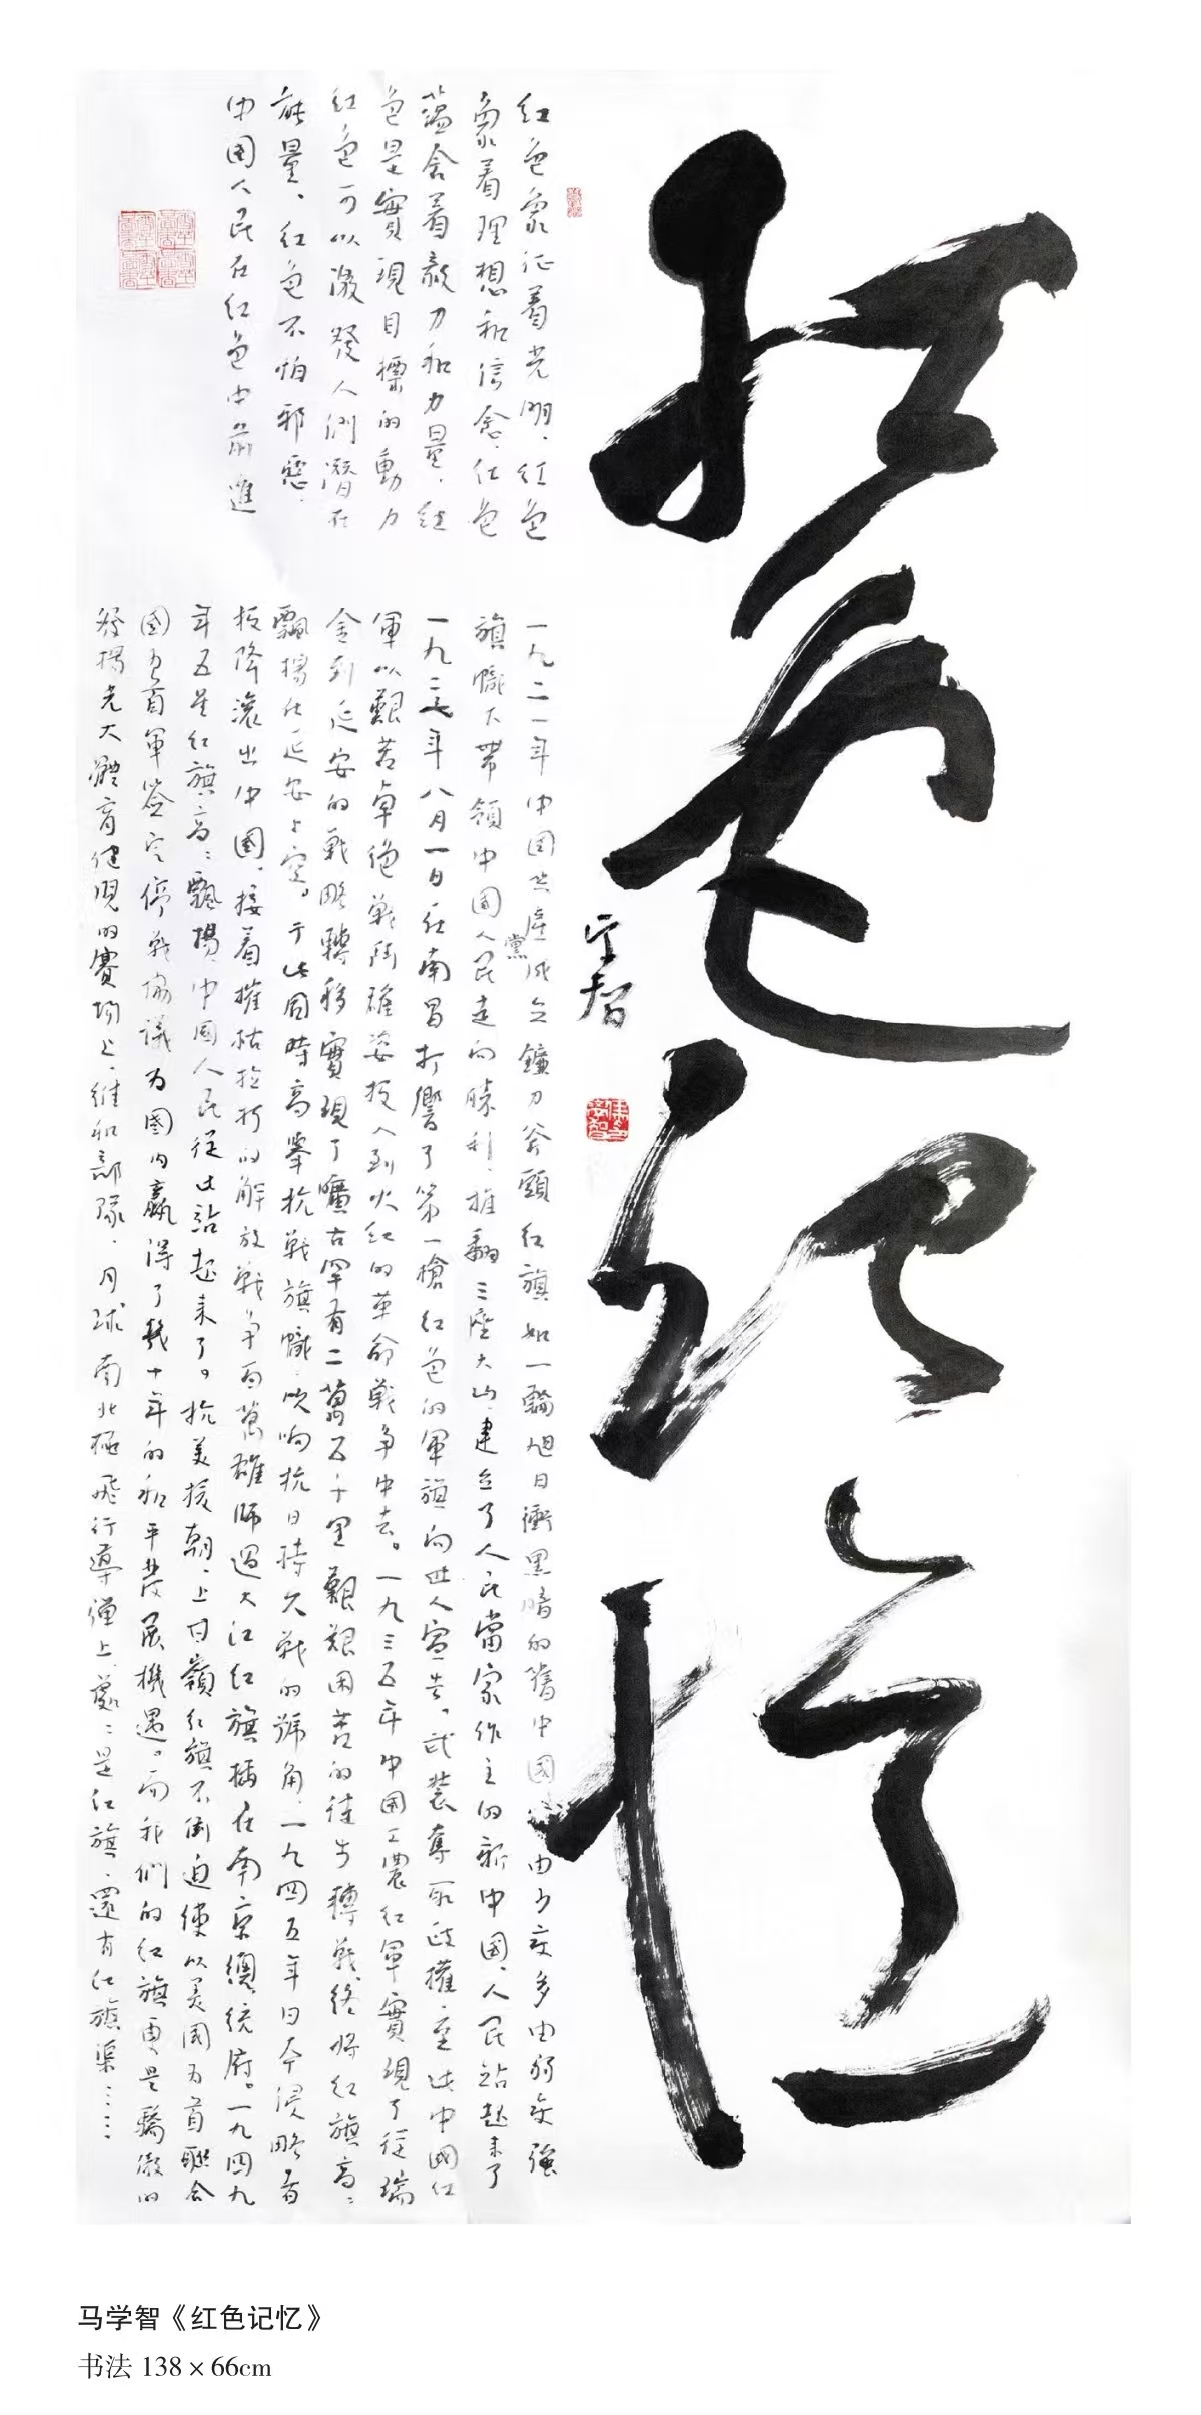 红色记忆
学智
红色象征着光明、红色
象着理想和信念、红色
蕴含着毅力和力量、红
色是實現目標的動力
红色可以激發人们潛在
能量、红色不怕邪惡、
中国人民在红色中前進
一九二一年中国共産党成立鐮刀斧頭红旗如一輪旭日衝黑暗的舊中國、由少变多由弱变强
旗幟下带領中国人民走向勝利、推翻三座大山、建立了人民當家作主的新中國、人民站起来了
一九二七年八月一日在南昌打響了第一槍红色的軍旗向世人宣告。武装奪取政權至此中國红
軍以艱苦卓绝戰鬥雄姿投入到火红的革命戰争中去。一九三五年中国工農红軍實現了從瑞
金到延安的戰略轉移實現了曠古罕有二萬五千里艱難困苦的徒步轉戰终將红旗高:
飄揚在延安上空。于此同時高舉抗戰旗幟、吹响抗日持久戰的號角、一九四五年日本侵略者
投降滚出中國、接着摧枯拉朽的解放戰争百萬雄師過大江红旗插在南京總统府。一九四九
年五星红旗高:飄揚、中国人民從此站起来了。抗美援朝、上甘嶺红旗不倒迫使以美国为首联合
國为首軍签定停戰協議为國内贏得了幾十年的和平發展機遇。而我們的红旗更是驕傲的
發揚光大體育健儿的賽場上、维和部隊、月球 南北極飛行導彈上、處:是红旗、還有红旗渠……
马学智《红色记忆》
书法 138×66cm